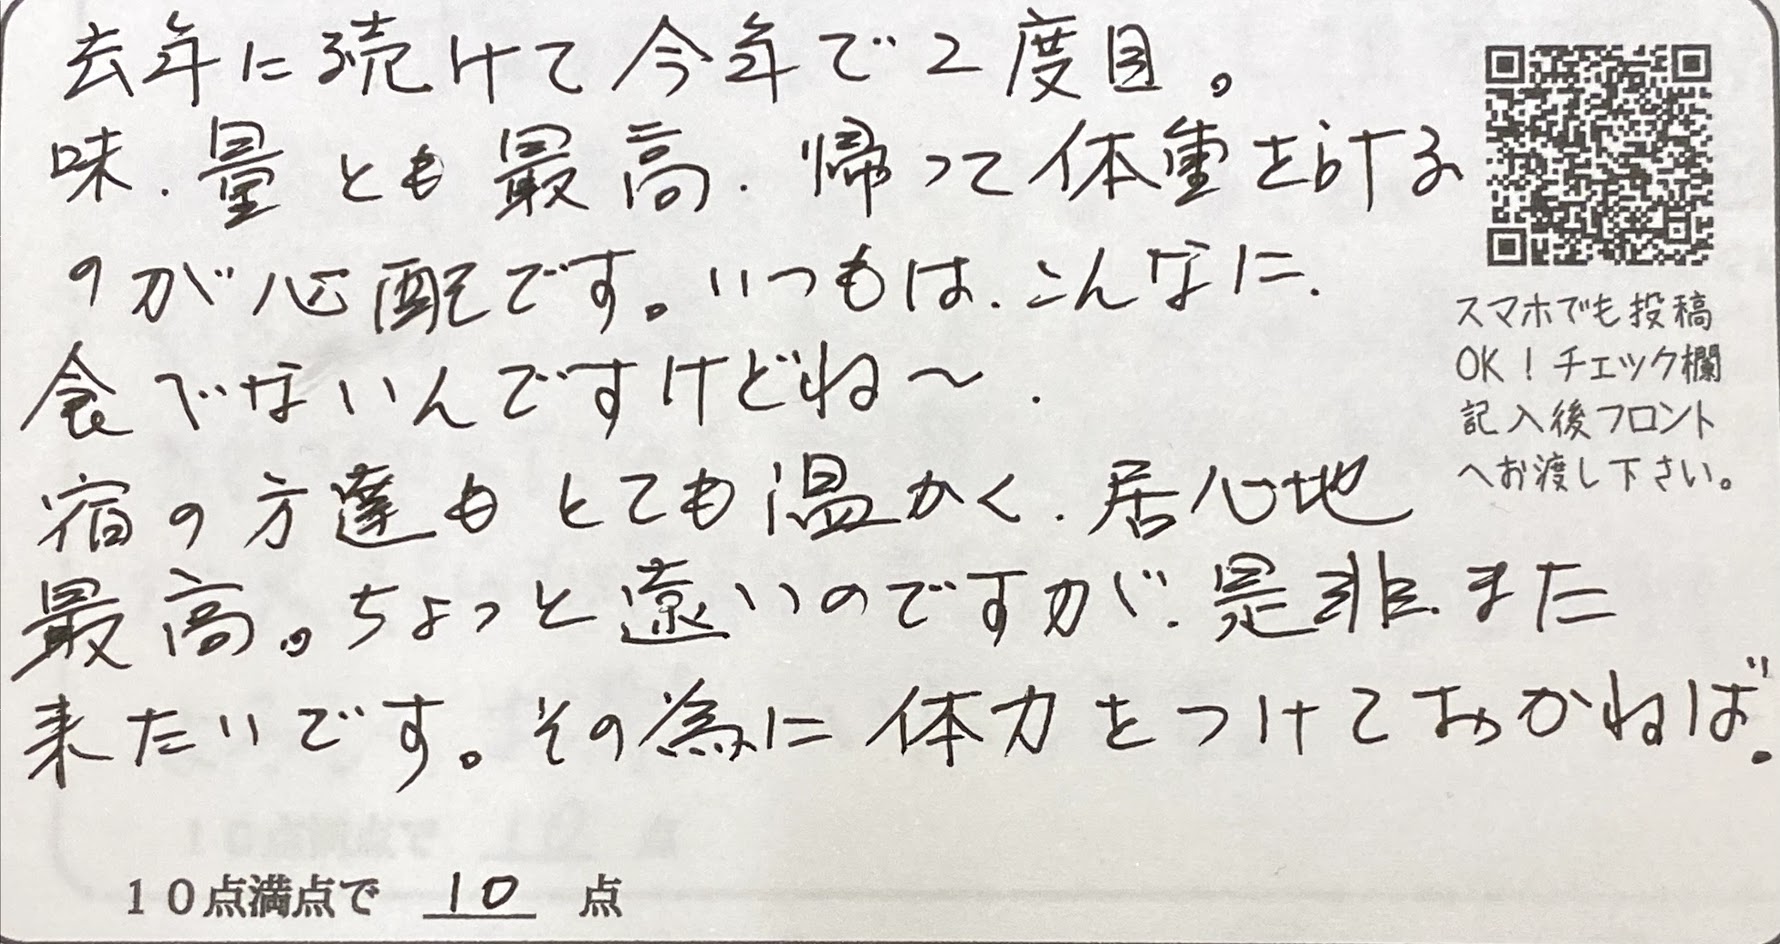 去年に続けて今年で2度目。
味、量とも最高、帰って体重を計る
のが心配です。いつもは、こんなに、
食べないんですけどね〜、
宿の方達もとても温かく、居心地
最高。ちょっと遠いのですが、是非、また
来たいです。その為に体力をつけておかねば。
スマホでも投稿
OK！チェック欄
記入後フロント
へお渡し下さい。
10点満点で 10 点